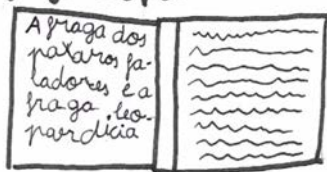 A fraga dos
paxaros fa-
ladores e a
fraga leo-
pardicia